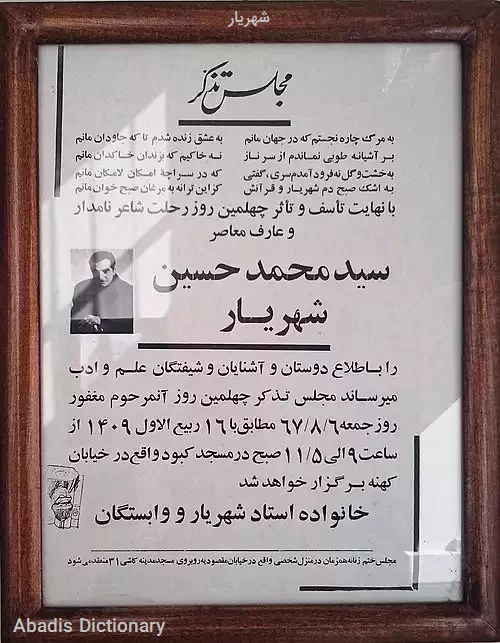 شهریار
مجلس تذکر
به مرگ چاره نجستم که در جهان مانم به عشق زنده شدم تا که جاودان مانم
بر آشیانه طوبی نماندم از سر ناز نه خاکیم که بزندان خاکدان مانم
به خشت و گل نه فرود آمدم سری، گفتی که در سراچهٔ امکان لامکان مانم
به اشک صبح دم شهریار و قرآنش کزاین ترانه به مرغان صبح خوان مانم
با نهایت تأسف و تأثر چهلمین روز رحلت شاعر نامدار
و عارف معاصر
سید محمد حسین
شهریار
را باطلاع دوستان و آشنایان و شیفتگان علم و ادب
میرساند مجلس تذکر چهلمین روز آنمرحوم مغفور
روز جمعه ۶۷/۸/۶ مطابق با ۱۶ ربیع الاول ۱۴۰۹ از
ساعت ۹ الی ۱۱/۵ صبح در مسجد کبود واقع در خیابان
کهنه برگزار خواهد شد
خانواده استاد شهریار و وابستگان
مجلس ختم زنانه همزمان در منزل شخصی واقع در خیابان مقصودیه روبروی مسجد مدینه کاشی ۳۱ منعقد می شود
Abadis Dictionary